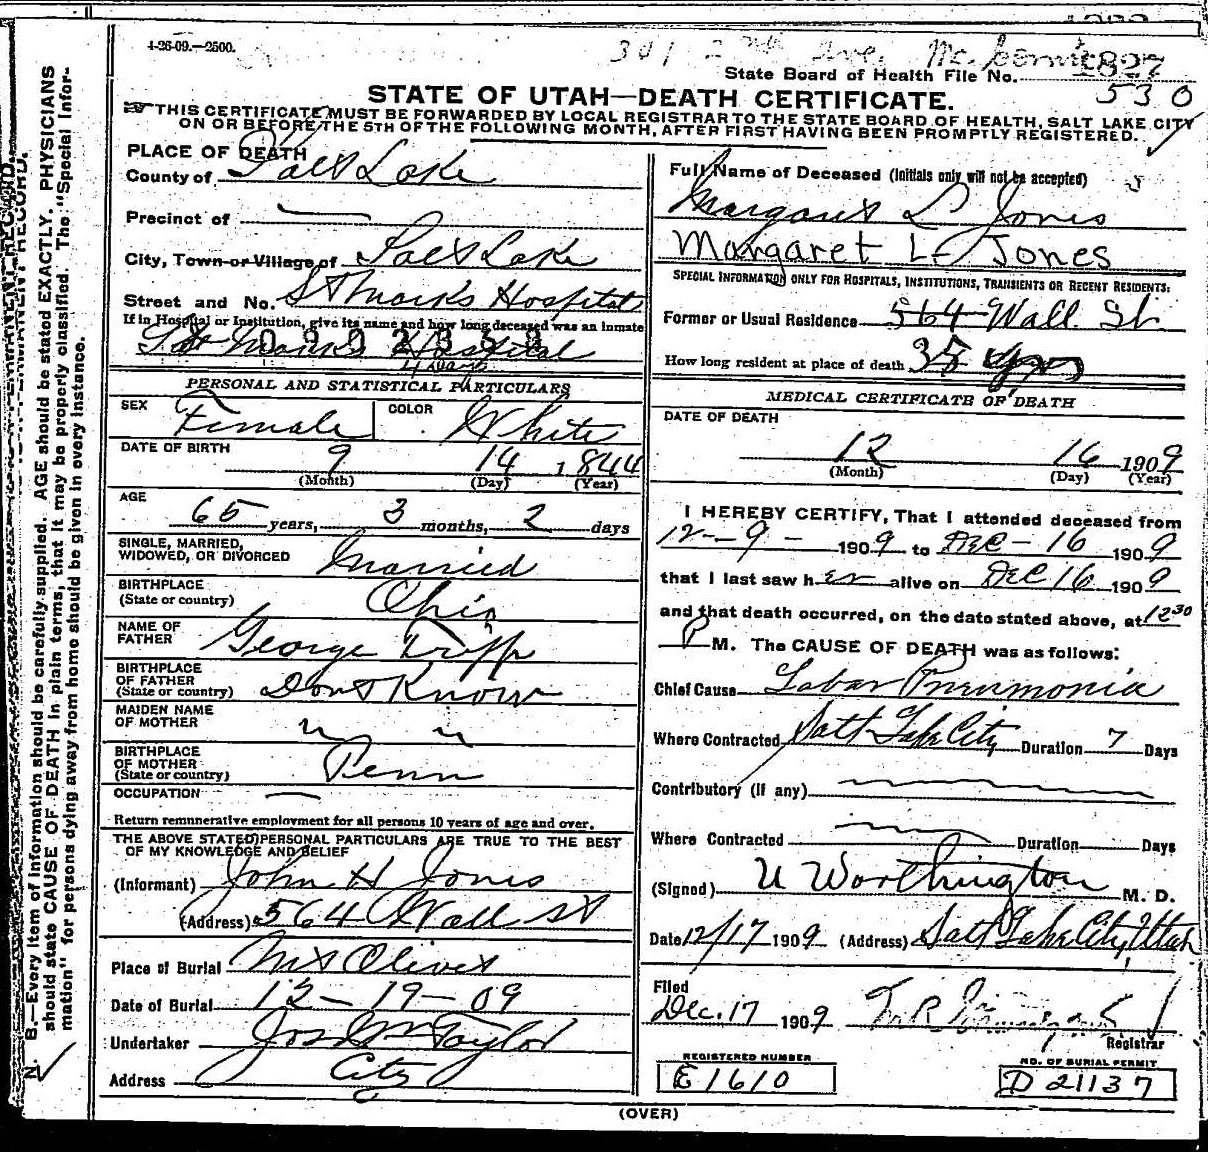 4-26-09.—2500.
341 2nd Ave.
State Board of Health File No. 1827
530
STATE OF UTAH—DEATH CERTIFICATE.
THIS CERTIFICATE MUST BE FORWARDED BY LOCAL REGISTRAR TO THE STATE BOARD OF HEALTH, SALT LAKE CITY
ON OR BEFORE THE 5TH OF THE FOLLOWING MONTH, AFTER FIRST HAVING BEEN PROMPTLY REGISTERED.
PLACE OF DEATH
County of Salt Lake
Precinct of —
City, Town or Village of Salt Lake
Street and No. St Marks Hospital
If in Hospital or Institution, give its name and how long deceased was an inmate
St Marks Hospital
4 days
PERSONAL AND STATISTICAL PARTICULARS
SEX Female COLOR White
DATE OF BIRTH 9 14 1844
(Month) (Day) (Year)
AGE 65 years, 3 months, 2 days
SINGLE, MARRIED,
WIDOWED, OR DIVORCED Married
BIRTHPLACE
(State or country) Ohio
NAME OF
FATHER George Tripp
BIRTHPLACE
OF FATHER
(State or country) Dont Know
MAIDEN NAME
OF MOTHER " "
BIRTHPLACE
OF MOTHER
(State or country) Penn
OCCUPATION —
Return remunerative employment for all persons 10 years of age and over.
THE ABOVE STATED PERSONAL PARTICULARS ARE TRUE TO THE BEST
OF MY KNOWLEDGE AND BELIEF
(Informant) John H Jones
(Address) 564 Wall St
Place of Burial Mt Olivet
Date of Burial 12-19-09
Undertaker Jos Wm Taylor
Address City
Full Name of Deceased (Initials only will not be accepted)
Margaret L Jones
Margaret L Jones
SPECIAL INFORMATION ONLY FOR HOSPITALS, INSTITUTIONS, TRANSIENTS OR RECENT RESIDENTS:
Former or Usual Residence 564 Wall St
How long resident at place of death 35 yrs
MEDICAL CERTIFICATE OF DEATH
DATE OF DEATH
12 16 1909
(Month) (Day) (Year)
I HEREBY CERTIFY, That I attended deceased from
12-9- 1909 to DEC-16 1909
that I last saw her alive on DEC 16 1909
and that death occurred, on the date stated above, at 12 30
P M. The CAUSE OF DEATH was as follows:
Chief Cause Lobar Pneumonia
Where Contracted Salt Lake City Duration 7 Days
Contributory (if any)
Where Contracted Duration Days
(Signed) U Worthington M. D.
Date 12/17 1909 (Address) Salt Lake City, Utah
Filed
Dec. 17 1909
Registrar
REGISTERED NUMBER
E 1610
NO. OF BURIAL PERMIT
D 21137
(OVER)
N. B.—Every item of information should be carefully supplied. AGE should be stated EXACTLY. PHYSICIANS
should state CAUSE OF DEATH in plain terms, that it may be properly classified. The "Special Infor-
mation" for persons dying away from home should be given in every instance.